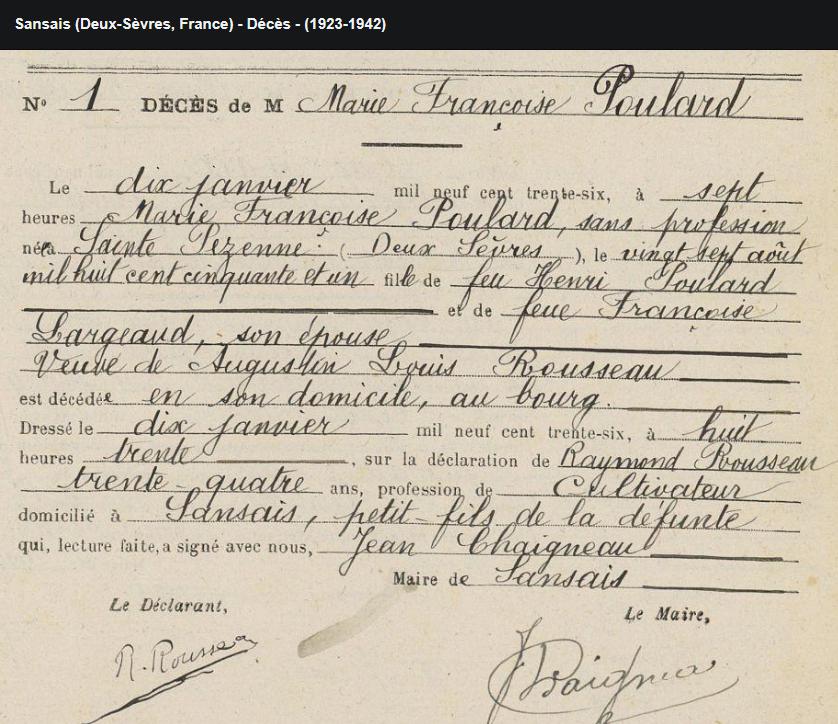 Sansais (Deux-Sèvres, France) - Décès - (1923-1942)
N° 1 DÉCÈS de M Marie Françoise Poulard
Le dix janvier mil neuf cent trente-six, à sept
heures Marie Françoise Poulard, sans profession
née à Sainte Pezenne (Deux Sèvres), le vingt sept août
mil huit cent cinquante et un fille de feu Henri Poulard
et de feue Françoise
Largeaud, son épouse
Veuve de Augustin Louis Rousseau
est décédée en son domicile, au bourg.
Dressé le dix janvier mil neuf cent trente-six, à huit
heures trente, sur la déclaration de Raymond Rousseau
trente-quatre ans, profession de Cultivateur
domicilié à Sansais, petit-fils de la défunte
qui, lecture faite, a signé avec nous, Jean Chaigneau
Maire de Sansais
Le Déclarant,
Le Maire,
R. Rousseau